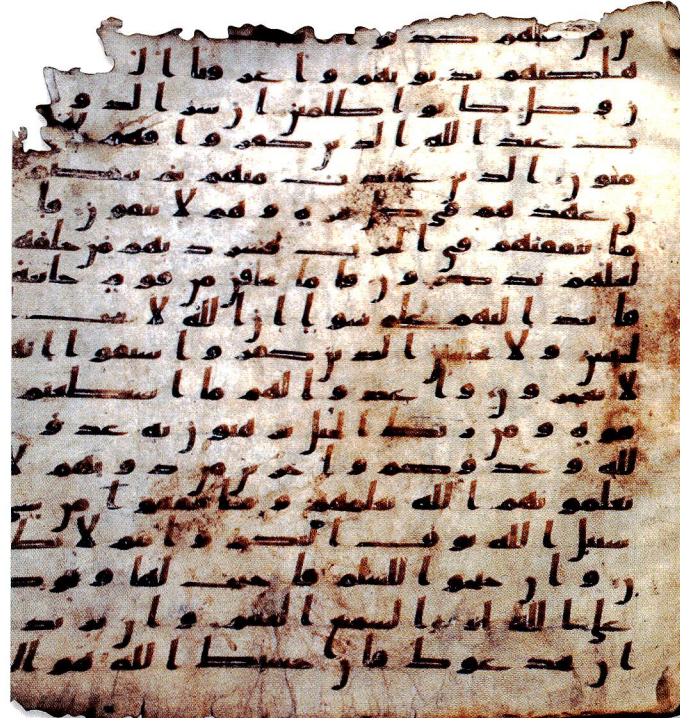 ن من قبلهم كذبوا
هلكنهم بذنوبهم وا عرفنا ا ل
ن و كل كا نوا ظلمين ا ن شر ا لدو
ب عند ا لله ا لذ ين كفر و ا فهم لا
منو ن ا لذ ين عهد ت منهم ثم ينقضو
ن عهد هم في كل مر ة و هم لا يتقو ن فا
ما تثقفنهم في ا لحر ب فشر د بهم من خلفه
لعلهم يذ كر و ن و ا ما تخا فن من قو م خيا نة
فا نبذ ا ليهم على سو ا ا ن ا لله لا يحب
ئنين و لا يحسبن ا لذ ين كفر و ا سبقو ا ا نه
لا يعجز و ن و ا عد و ا لهم ما ا ستطعتم
قو ة و من ر بط ا لخيل تر هبو ن به عد و
لله و عد و كم و ا خر ين من د و نهم لا
تعلمو نهم ا لله يعلمهم و ما تنفقو ا من
سبيل ا لله يو ف ا ليكم و ا نتم لا تظ
ن و ا ن جنحو ا للسلم فا جنح لها و تو ك
على ا لله ا نه هو ا لسميع ا لعليم و ا ن ير يد
ا ن يخد عو ك فا ن حسبك ا لله هو ا لذ